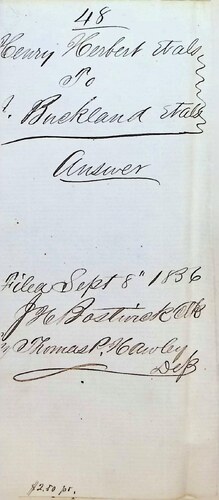 48
Henry Herbert et als
To
Buckland et als
Answer
Filed Sept 8" 1836
J H Bostwick Clk
Thomas P. Hawley
Dep
$2.50 pr.